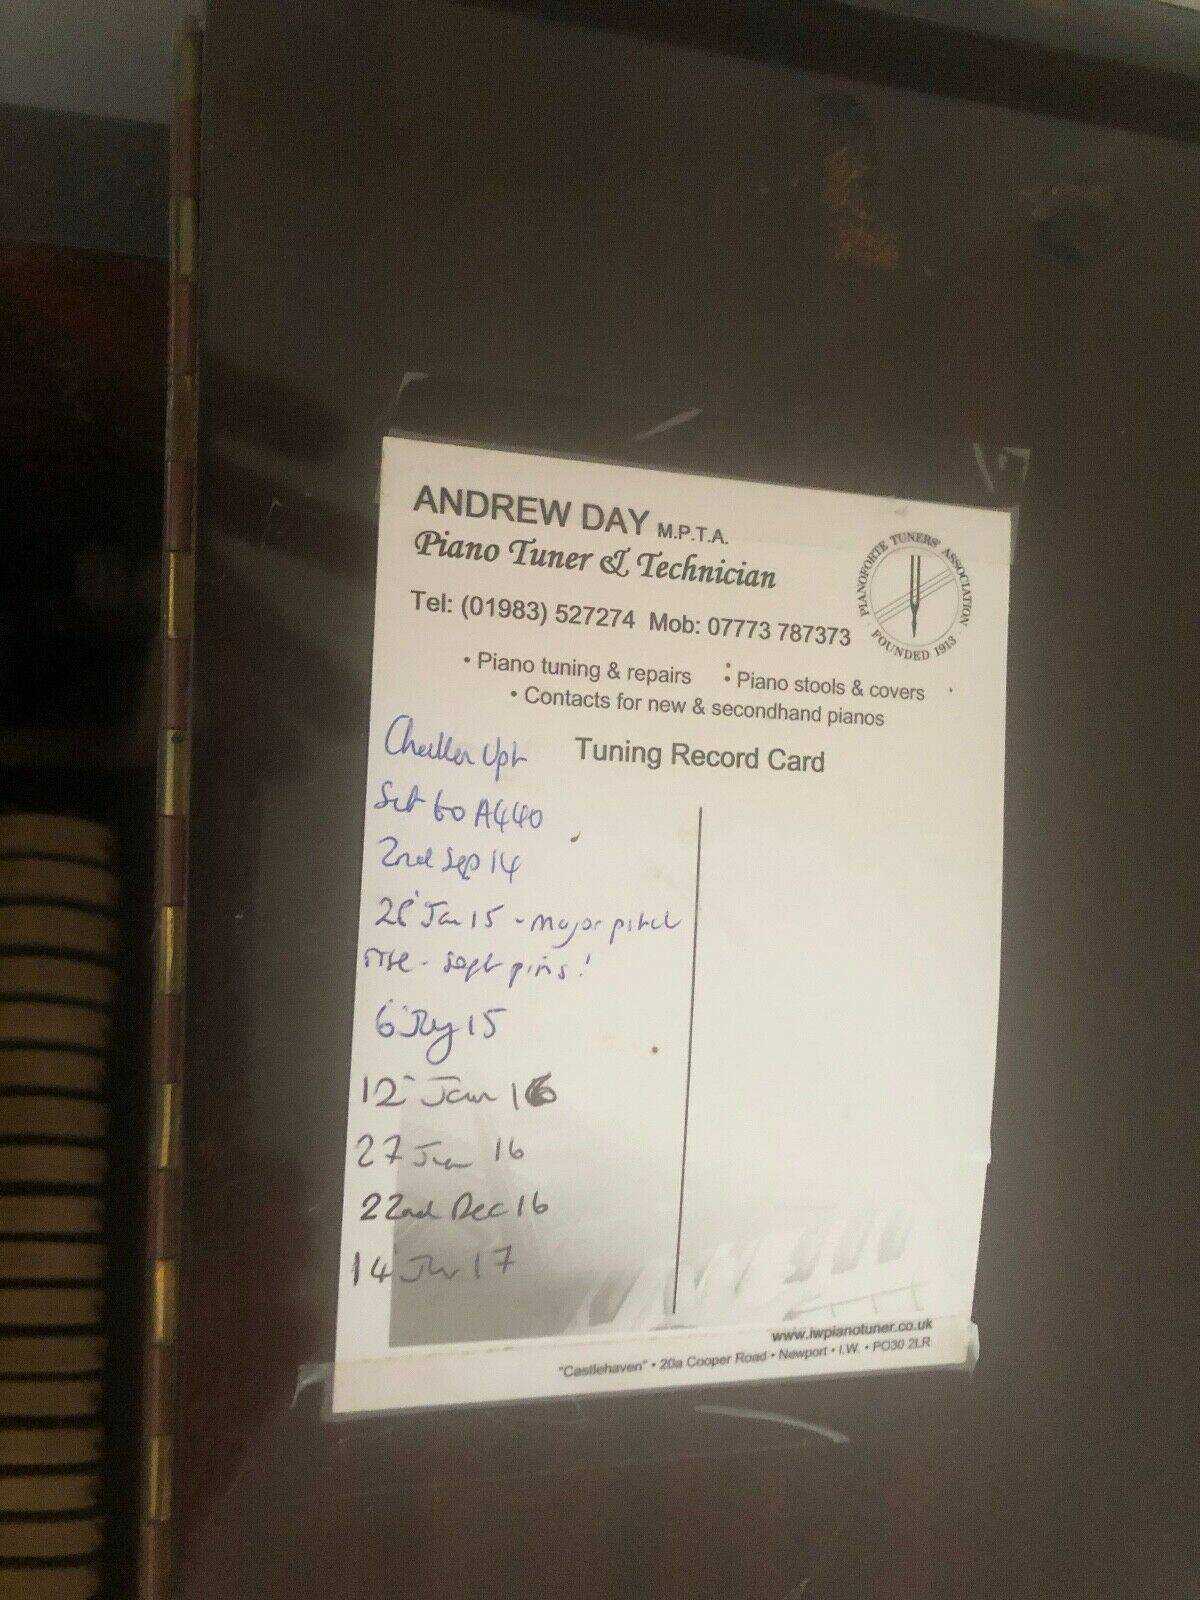 ANDREW DAY M.P.T.A.
Piano Tuner & Technician
Tel: (01983) 527274 Mob: 07773 787373
PIANOFORTE TUNERS' ASSOCIATION
FOUNDED 1913
• Piano tuning & repairs • Piano stools & covers
• Contacts for new & secondhand pianos
Tuning Record Card
Challen Upt
Set to A440
2nd Sep 14
Jan 15 - major pitch
rise - soft pins!
6 Jly 15
12 Jan 16
27 Jun 16
22nd Dec 16
14 17
www.iwpianotuner.co.uk
"Castlehaven" • 20a Cooper Road • Newport • I.W. • PO30 2LR